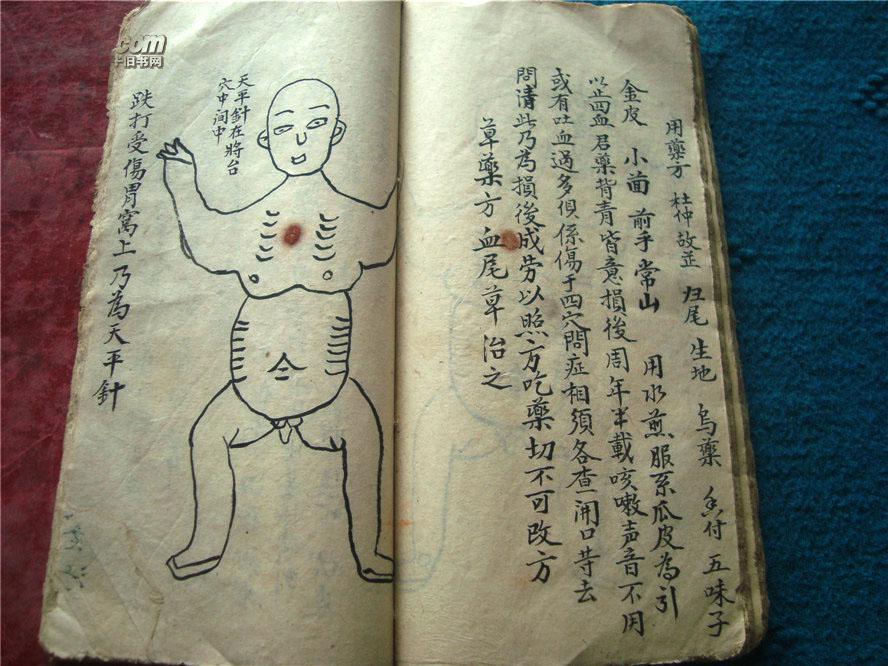 用藥方 杜仲 故芷 归尾 生地 烏藥 香付 五味子
金皮 小茴 前手 常山 用水煎服系瓜皮為引
以止四血君藥背青皆意損後周年半載咳嗽声音不用
或有吐血過多俱係傷于四穴問症相須各查開口苛去
問清此乃為損後成劳以照方吃藥切不可改方
草藥方 血尾草治之
天平針在將台
穴中间中
跌打受傷胃窩上乃為天平針
.com
旧书网